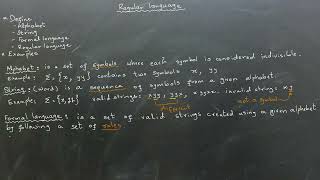 Regular language
* Define
- Alphabet
- String
- Formal language
- Regular language
* Examples
Alphabet: is a set of symbols where each symbol is considered indivisible.
Example: Σ={x, yy} contains two symbols x, yy
String: (words) is a sequence of symbols from a given alphabet.
Example: valid strings: xyy, yyx, invalid string: xy
different
not a symbol
Formal language: is a set of valid strings created using a given alphabet
by following a set of rules.